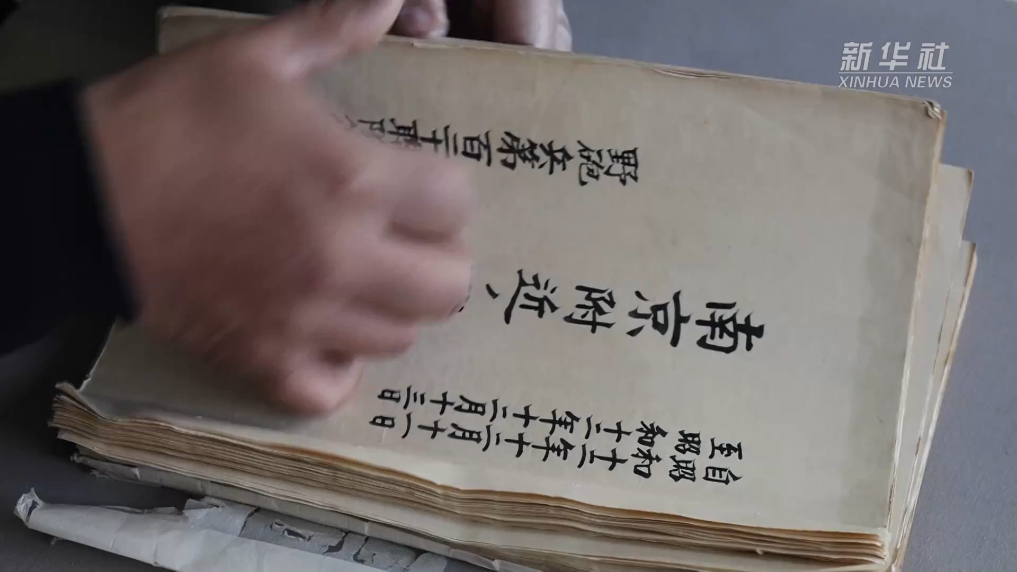 新华社
XINHUA NEWS
自昭和十二年十二月十一日
至昭和十二年十二月十三日
南京附近、
野砲兵第百二十聯